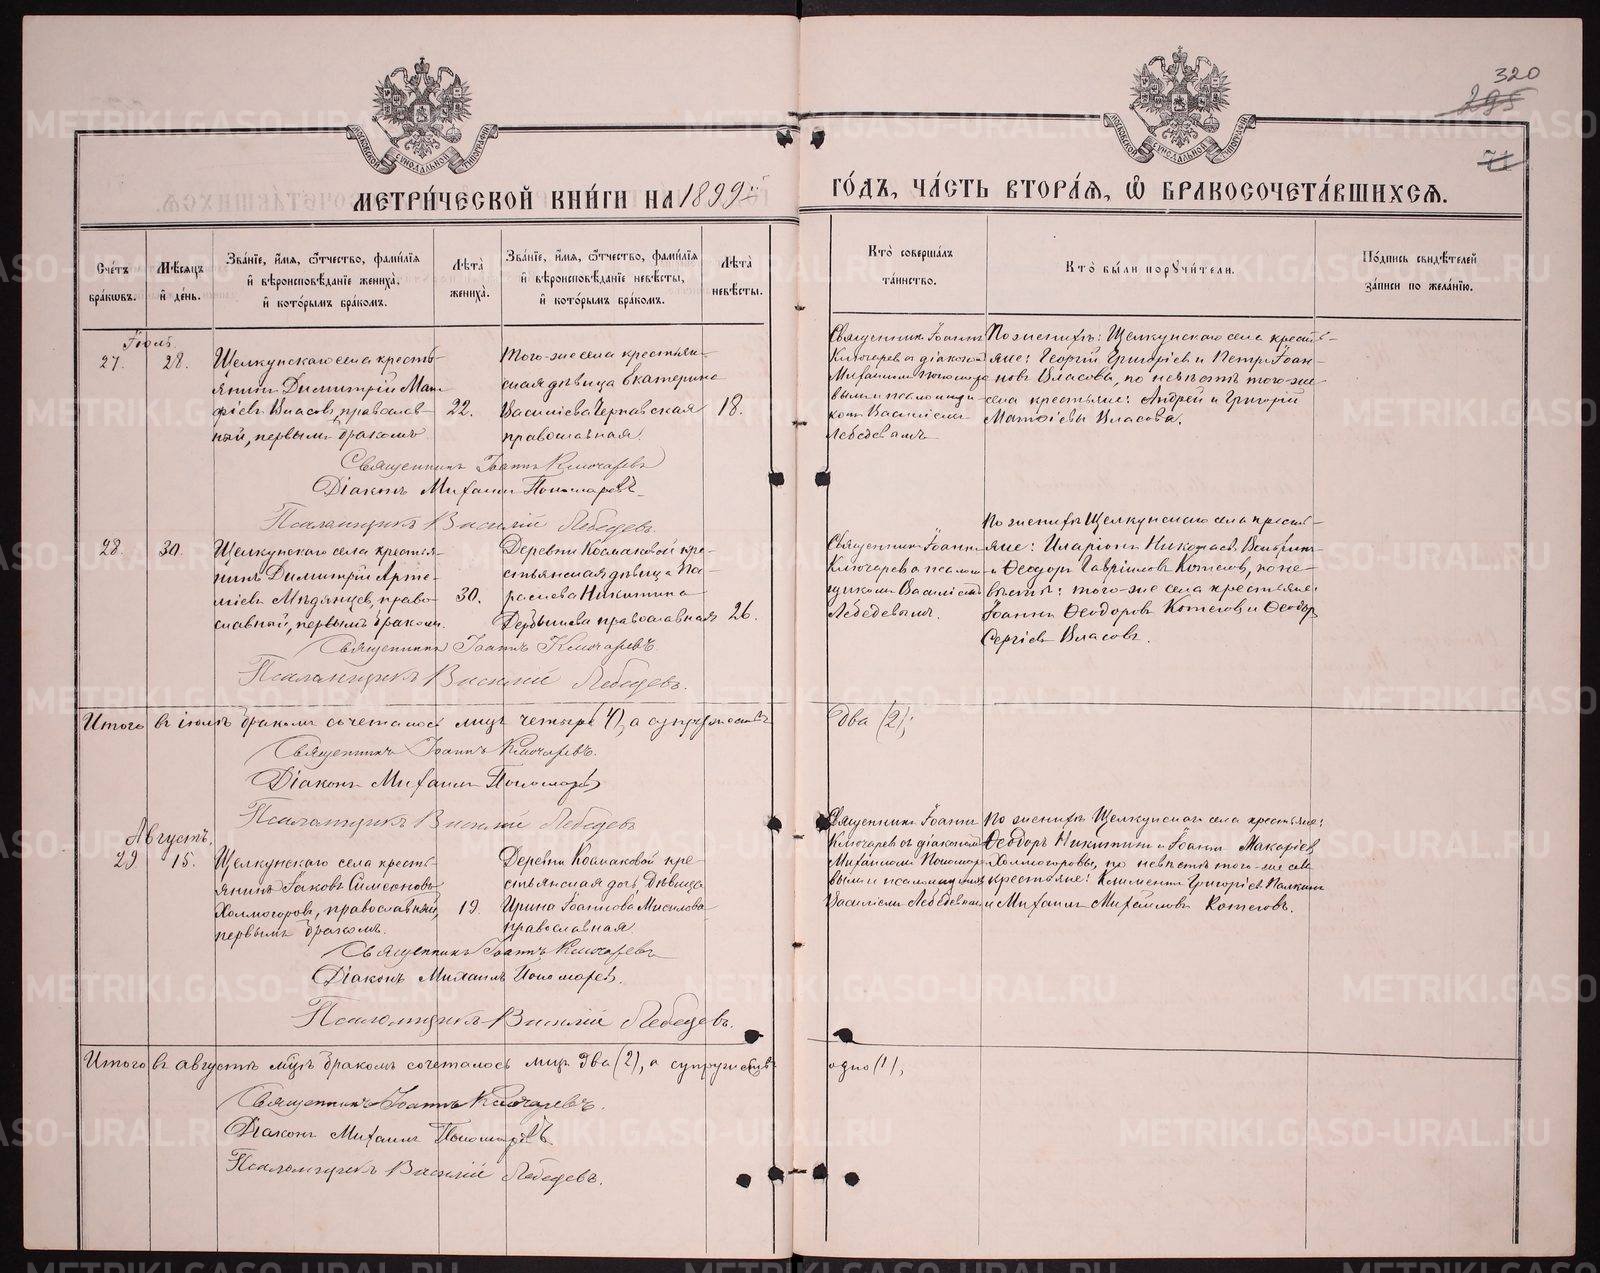 320
295
71
МОСКОВСКОЙ СѴНОДАЛЬНОЙ ТИПОГРАФІИ
МОСКОВСКОЙ СѴНОДАЛЬНОЙ ТИПОГРАФІИ
МЕТРИ́ЧЕСКОЙ КНИ́ГИ НА 1899й
ГО́ДЪ, ЧА́СТЬ ВТОРА́Я, Ѽ БРАКОСОЧЕТА́ВШИХСЯ.
Сче́тъ бра́кωвъ.
Мѣ́сяцъ и҆ де́нь.
Зва́нїе, и҆́мя, ѻ҆́тчество, фами́лїя
и҆ вѣроисповѣ́данїе жениха̀,
и҆ кото́рымъ бра́комъ.
Лѣ́та̀ жениха̀.
Зва́нїе, и҆́мя, ѻ҆́тчество, фами́лїя
и҆ вѣроисповѣ́данїе невѣ́сты,
и҆ кото́рымъ бра́комъ.
Лѣ́та̀ невѣ́сты.
Кто̀ соверша́лъ
та́инство.
Кто̀ бы́ли порꙋчи́тели.
По́дпись свидѣ́телей
за́писи по жела́нїю.
Іюль
27. 28.
Щелкунскаго села кресть-
янинъ Димитрій Мат-
ѳіевъ Власовъ, православ-
ный, первымъ бракомъ.
22.
Того-же села крестьян-
ская дѣвица Екатерина
Васильева Чернавская
православная.
18.
Священникъ Іоаннъ
Ключаревъ съ діакономъ
Михаиломъ Пономаре-
вымъ и псаломщи-
комъ Василіемъ
Лебедевымъ.
По женихѣ: Щелкунскаго села кресть-
яне: Георгій Григоріевъ и Петръ Іоан-
новъ Власовы, по невѣстѣ того-же
села крестьяне: Андрей и Григорій
Матѳіевы Власовы.
Священникъ Іоаннъ Ключаревъ
Діаконъ Михаилъ Пономаревъ
Псаломщикъ Василій Лебедевъ.
28. 30.
Щелкунскаго села крестья-
нинъ Димитрій Арте-
міевъ Мѣдянцевъ, право-
славный, первымъ бракомъ.
30.
Деревни Космаковой кре-
стьянская дѣвица Па-
раскева Никитина
Дербышева православная
26.
Священникъ Іоаннъ
Ключаревъ съ псалом-
щикомъ Василіемъ
Лебедевымъ.
По женихѣ Щелкунскаго села кресть-
яне: Иларіонъ Николаевъ
и Ѳеодоръ Гавріиловъ Котеговъ, по не-
вѣстѣ: того-же села крестьяне:
Іоаннъ Ѳеодоровъ Котеговъ и Ѳеодоръ
Сергіевъ Власовъ.
Священникъ Іоаннъ Ключаревъ.
Псаломщикъ Василій Лебедевъ.
Итого въ іюлѣ бракомъ сочеталось лицъ четыре (4), а супружествъ два (2);
Священникъ Іоаннъ Ключаревъ.
Діаконъ Михаилъ Пономаревъ
Псаломщикъ Василій Лебедевъ
Августъ.
29 15.
Щелкунскаго села кресть-
янинъ Іаковъ Симеоновъ
Холмогоровъ, православный,
первымъ бракомъ.
19.
Деревни Космаковой кре-
стьянская дочь, дѣвица
Ирина Іоаннова
православная.
Священникъ Іоаннъ
Ключаревъ съ діакономъ
Михаиломъ Пономаре-
вымъ и псаломщикомъ
Василіемъ Лебедевымъ
По женихѣ Щелкунскаго села крестьяне:
Ѳеодоръ Никитинъ и Іоаннъ Макаріевъ
Холмогоровы, по невѣстѣ того-же села
крестьяне: Климентъ Григоріевъ Палкинъ
и Михаилъ Михаиловъ Котеговъ.
Священникъ Іоаннъ Ключаревъ
Діаконъ Михаилъ Пономаревъ.
Псаломщикъ Василій Лебедевъ.
Итого въ августѣ мцѣ бракомъ сочеталось лицъ два (2), а супружествъ одно (1);
Священникъ Іоаннъ Ключаревъ.
Діаконъ Михаилъ Пономаревъ
Псаломщикъ Василій Лебедевъ.
METRIKI.GASO-URAL.RU